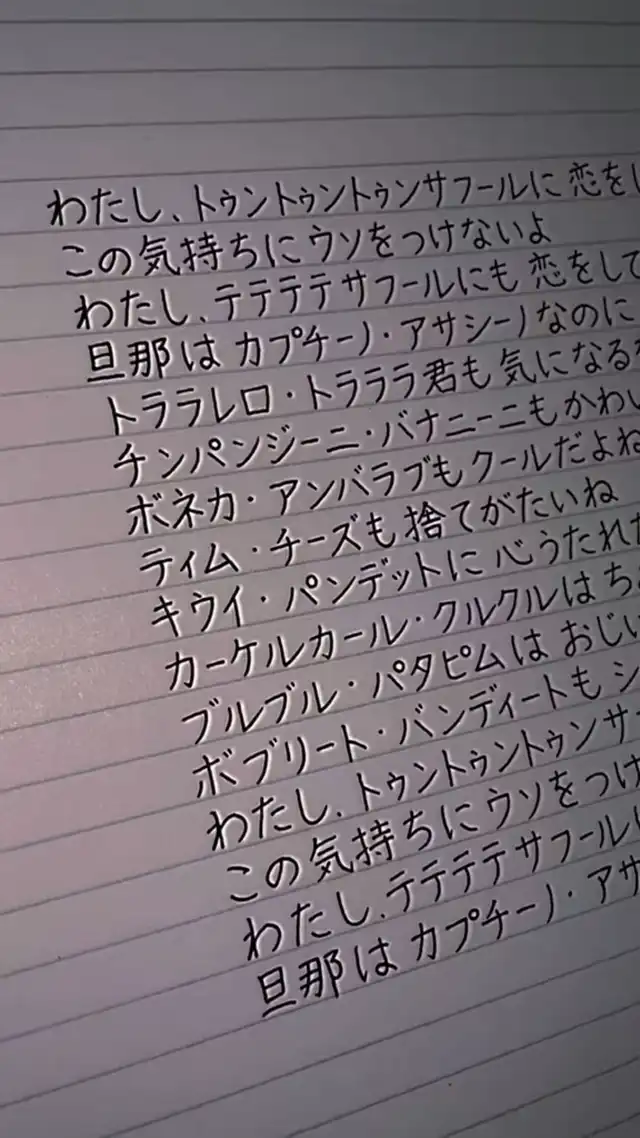 わたし、トゥントゥントゥンサフールに恋をし
この気持ちにウソをつけないよ
わたし、テテテテサフールにも恋をして
旦那はカプチーノ・アサシーノなのに
トララレロ・トラララ君も気になる
チンパンジーニ・バナニーニもかわい
ボネカ・アンバラブもクールだよね
ティム・チーズも捨てがたいね
キウイ・パンデットに心うたれた
カーケルカール・クルクルはち
ブルブル・パタピムはおじい
ボブリート・バンディートもシ
わたし、トゥントゥントゥンサ
この気持ちにウソをつけ
わたし、テテテテサフールに
旦那はカプチーノ・アサ